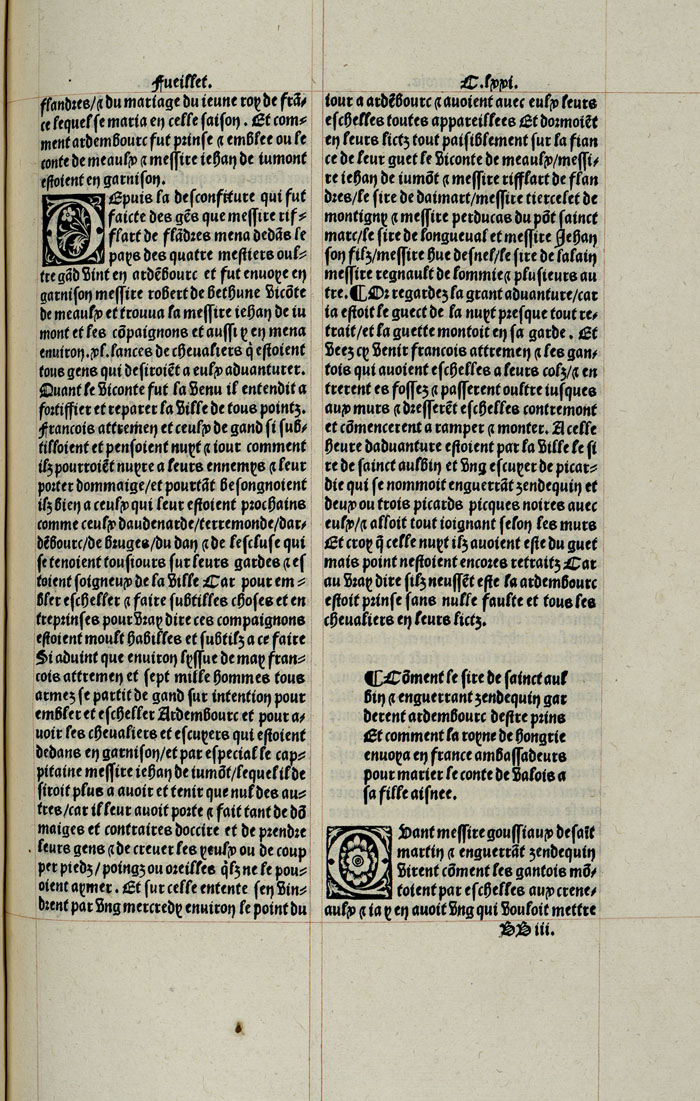 Fueillet.
flandres/⁊ du mariage du ieune roy de frā-
ce lequel se maria en celle saison. Et com-
ment ardembourc fut prinse ⁊ emblee ou le
conte de meaulx ⁊ messire iehan de iumont
estoient en garnison.
DEpuis la desconfiture qui fut
faicte des gēs que messire rif-
flart de flādres mena dedās le
pays des quatre mestiers oul-
tre gād vint en ardēbourc et fut enuoye en
garnison messire robert de bethune vicōte
de meaulx et trouua la messire iehan de iu
mont et les cōpaignons et aussi y en mena
environ.xl.lances de cheualiers q̄ estoient
tous gens qui desiroiēt a eulx aduanturer.
Quant le viconte fut la venu il entendit a
fortiffier et reparer la ville de tous pointz.
Francois attremen et ceulx de gand si sub-
tilloient et pensoient nuyt ⁊ iour comment
ilz pourroiēt nuyre a leurs ennemys ⁊ leur
porter dommaige/et pourtāt besongnoient
ilz bien a ceulx qui leur estoient prochains
comme ceulx daudenarde/terremonde/dar-
dēbourc/de bruges/du dan ⁊ de lescluse qui
se tenoient tousiours sur leurs gardes ⁊ es
toient soigneux de la ville Car pour em-
bler escheller ⁊ faire subtilles choses et en
treprinses pour vray dire ces compaignons
estoient moult habilles et subtilz a ce faire
Si aduint que environ lyssue de may fran-
cois attremen et sept mille hommes tous
armez se partit de gand sur intention pour
embler et escheller Ardembourc et pour a-
uoir les cheualiers et escuyers qui estoient
dedans en garnison/et par especial le cap-
pitaine messire iehan de iumōt/lequel il de
siroit plus a auoir et tenir que nul des au-
tres/car il leur auoit porte ⁊ fait tant de dō
maiges et contraires doccire et de prendre
leurs gens ⁊ de creuer les yeulx ou de coup
per piedz/poingz ou oreilles q̄lz ne le pou-
oient aymer. Et sur celle entente sen vin-
drent par vng mercredy enuiron le point du
C.lxxi.
iour a ardēbourc ⁊ auoient auec eulx leurs
eschelles toutes appareillees Et dormoiēt
en leurs lictz tout paisiblement sur la fian
ce de leur guet le viconte de meaulx/messi-
re iehan de iumōt ⁊ messire rifflart de flan
dres/le sire de daimart/messire tiercelet de
montigny ⁊ messire perducas du pōt sainct
marc/le sire de longueual et messire Jehan
son filz/messire hue desnel/le sire de lalain
messire regnault de lommie⁊ plusieurs au
tre.¶Or regardez la grant aduanture/car
ia estoit le guect de la nuyt presque tout re-
trait/et la guette montoit en sa garde. Et
veez cy venir francois attremen ⁊ les gan-
tois qui auoient eschelles a leurs colz/⁊ en
trerent es fossez ⁊ passerent oultre iusques
aux murs ⁊ dresserēt eschelles contremont
et cōmencerent a ramper ⁊ monter. A celle
heure daduanture estoient par la ville le si
re de sainct aulbin et vng escuyer de picar-
die qui se nommoit enguerrāt zendequin et
deux ou trois picards picques noires auec
eulx/⁊ alloit tout ioignant selon les murs
Et croy q̄ celle nuyt ilz auoient este du guet
mais point nestoient encores retraitz Car
au vray dire silz neussēt este la ardembourc
estoit prinse sans nulle faulte et tous les
cheualiers en leurs lictz.
¶Cōment le sire de sainct aul
bin ⁊ enguerrant zendequin gar
derent ardembourc destre prins
Et comment la royne de hongrie
enuoya en france ambassadeurs
pour marier le conte de valois a
sa fille aisnee.
QVant messire goussiaux de sait
martin ⁊ enguerrāt zendequin
virent cōment les gantois mō-
toient par eschelles aux crene-
aulx ⁊ ia y en auoit vng qui vouloit mettre
BB iii.